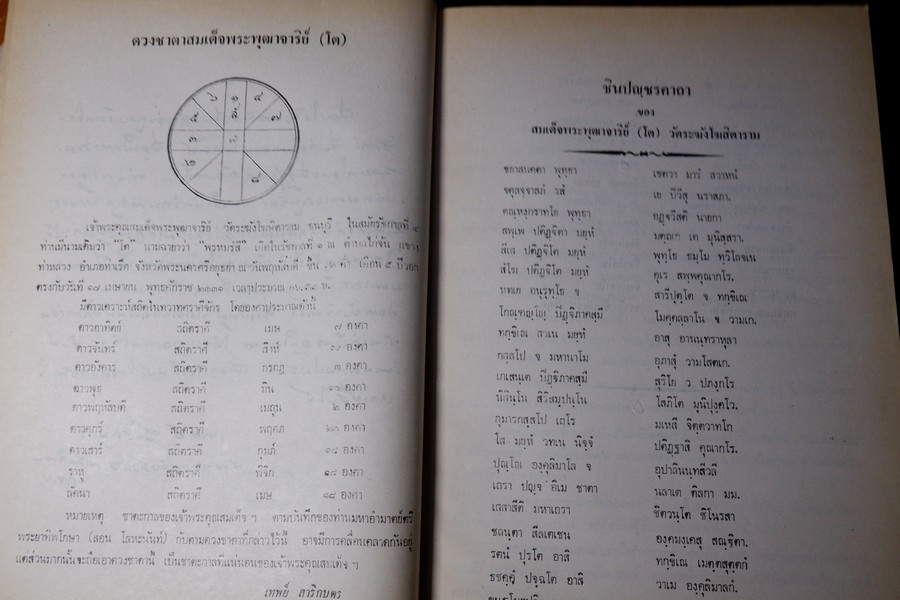 ดวงชาตาสมเด็จพระพุฒาจาริย์ (โต)
เจ้าพระคุณสมเด็จพระพุฒาจาริย์ วัดระฆังโฆษิตาราม ธนบุรี ในสมัยรัชกาลที่ ๔
ท่านมีนามเดิมว่า "โต" นามฉายาว่า "พรหมรังสี" เกิดในรัชกาลที่ ๑ ณ ตำบลไก่จ้น แขวง
ท่าหลวง อำเภอท่าเรือ จังหวัดพระนครศรีอยุธยา ณ วันพฤหัสบดี ขึ้น ค่ำ เดือน ๕ ปีวอก
ตรงกับวันที่ ๑๗ เมษายน พุทธศักราช ๒๓๓๑ เวลาประมาณ
มีดาวเคราะห์สถิตในทวาทศราศีจักร โดยองศาประมาณดังนี้
ดาวอาทิตย์ สถิตราศี เมษ ๗ องศา
ดาวจันทร์ สถิตราศี สิงห์ องศา
ดาวอังคาร สถิตราศี กรกฎ ๓ องศา
ดาวพุธ สถิตราศี มีน องศา
ดาวพฤหัสบดี สถิตราศี เมถุน ๒ องศา
ดาวศุกร์ สถิตราศี พฤศภ องศา
ดาวเสาร์ สถิตราศี กุมภ์ องศา
ราหู สถิตราศี พิจิก องศา
ลัคนา สถิตราศี เมษ องศา
หมายเหตุ ชาตะกาลของเจ้าพระคุณสมเด็จ ฯ ตามบันทึกของท่านมหาอำมาตย์ตรี
พระยาทิพโกษา (สอน โลหะนันท์) กับตามดวงชาตาที่กล่าวไว้นี้ อาจมีการคลื่นคลาดกันอยู่
แต่ส่วนมากนั้นจะถือเอาดวงชาตานี้ เป็นชาตะกาลที่แน่นอนของเจ้าพระคุณสมเด็จ ฯ
เทพย์ สาริกบุตร
ชินปญฺชรคาถา
ของ
สมเด็จพระพุฒาจาริย์ (โต) วัดระฆังโฆสิตาราม
ชยาสนคตา พุทฺธา เชตวา มารํ สวาหนํ
จตุสจฺจาสภํ รสํ เย ปิวึสุ นราสภา.
ตณฺหงฺกราทโย พุทฺธา อฏฺฐวีสติ นายกา
สพฺเพ ปติฏฺฐิตา มยฺหํ มตฺถเก เต มุนิสฺสรา.
สีเส ปติฏฺฐิโต มยฺหํ พุทฺโธ ธมฺโม ทวิโลจเน
สํโฆ ปติฏฺฐิโต มยฺหํ อุเร สพฺพคุณากโร.
หทเย อนุรุทฺโธ จ สารีปุตฺโต จ ทกฺขิเณ
โกณฺฑญฺโญ ปิฏฺฐิภาคสฺมึ โมคฺคลฺลาโน จ วามเก.
ทกฺขิเณ สวเน มยฺหํ อาสุ อานนฺทราหุลา
กสฺสโป จ มหานาโม อุภาสุํ วามโสตเก.
เกเสนฺเต ปิฏฺฐิภาคสฺมึ สุริโย ว ปภงฺกโร
นิสินฺโน สิริสมฺปนฺโน โสภิโต มุนิปุงฺคโว.
กุมารกสฺสโป เถโร มเหสี จิตฺตวาทโก
โส มยฺหํ วทเน นิจฺจํ ปติฏฺฐาสิ คุณากโร.
ปุณฺโณ องฺคุลิมาโล จ อุปาลินนฺทสีวลี
เถรา ปญฺจ อิเม ชาตา นลาเต ติลกา มม.
เสสาสีติ มหาเถรา ชิตวนฺโต ชิโนรสา
ชลนฺตา สีลเตเชน องฺคมงฺเคสุ สณฺฐิตา.
รตนํ ปุรโต อาสิ ทกฺขิเณ เมตฺตสุตฺตกํ
ธชคฺคํ ปจฺฉโต อาสิ วาเม องฺคุลิมาลกํ.